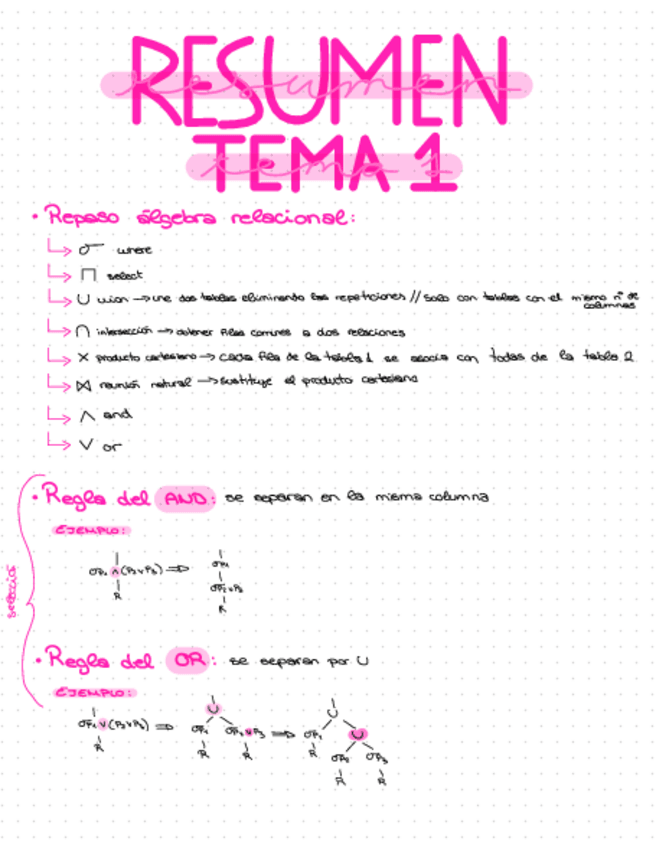 RESUMEN
resumen
TEMA 1
tema 1
• Repaso álgebra relacional:
↳ σ where
↳ Π select
↳ ∪ union → une dos tablas eliminando las repeticiones // Solo con tablas con el mismo nº de columnas
↳ ∩ intersección → obtener filas comunes a dos relaciones
↳ × producto cartesiano → cada fila de la tabla 1 se asocia con todas de la tabla 2
↳ ⋈ reunión natural → sustituye el producto cartesiano
↳ ∧ and
↳ ∨ or
selección
• Regla del AND: se separan en la misma columna
EJEMPLO:
σP₁ ∧ (P₂∨P₃) ⇒ σP₁
σP₂∨P₃
R R
• Regla del OR: se separan por ∪
EJEMPLO:
σP₁ ∨ (P₂∨P₃) ⇒ ∪ ⇒ ∪
R σP₁ σP₂∨P₃ σP₁ ∪
R R R σP₂ σP₃
R R